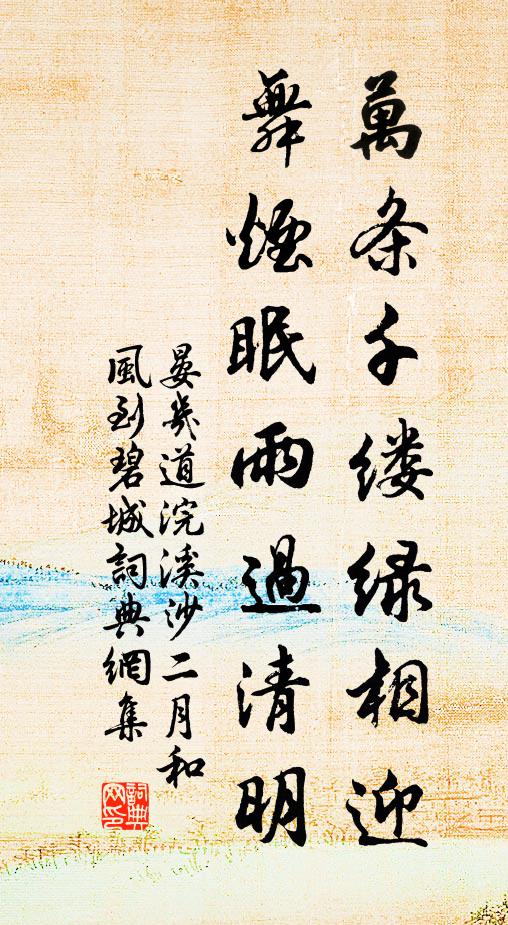 萬条千缕绿相迎
舞煙眠雨過清明
晏幾道浣溪沙二月和
風到碧城詞典網集
詞典网印